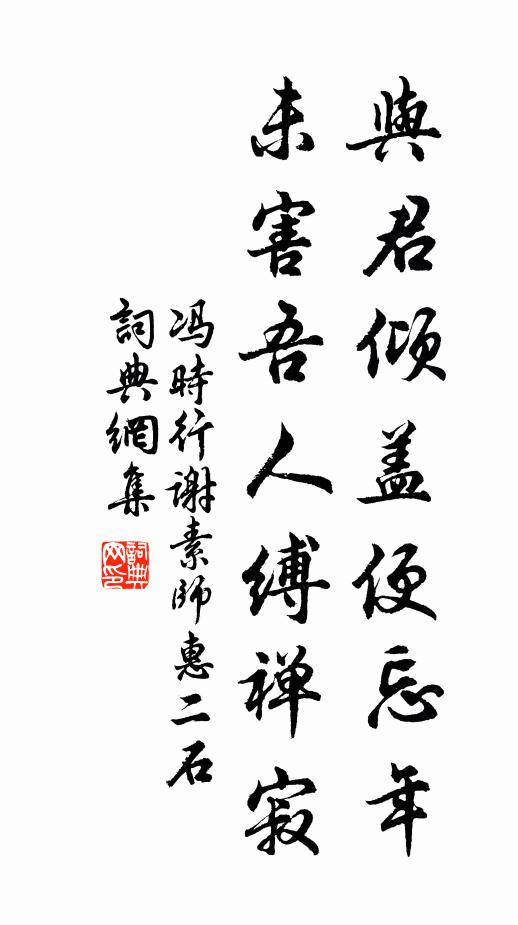 與君傾盖便忘年
未害吾人縛禅寂
冯時行谢素師惠二石
詞典網集
詞典網印